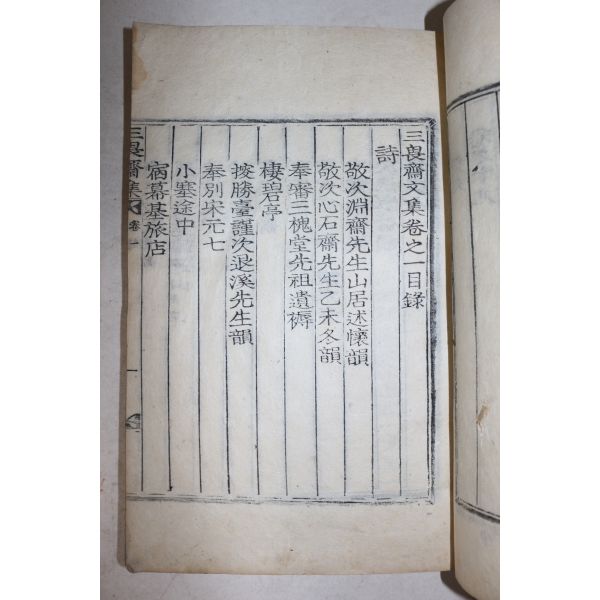 三畏齋文集卷之一目錄
詩
敬次淵齋先生山居述懷韻
敬次心石齋先生乙未冬韻
奉審三槐堂先祖遺褥
棲碧亭
搜勝臺謹次退溪先生韻
奉別宋元七
小塞途中
宿幕基旅店
三畏齋集 卷一
一